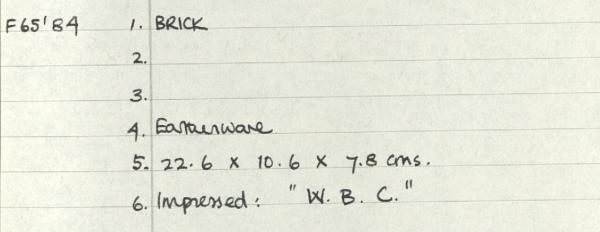 F65'84 1. BRICK
2.
3.
4. Earthenware
5. 22.6 x 10.6 x 7.8 cms.
6. Impressed: "W. B. C."